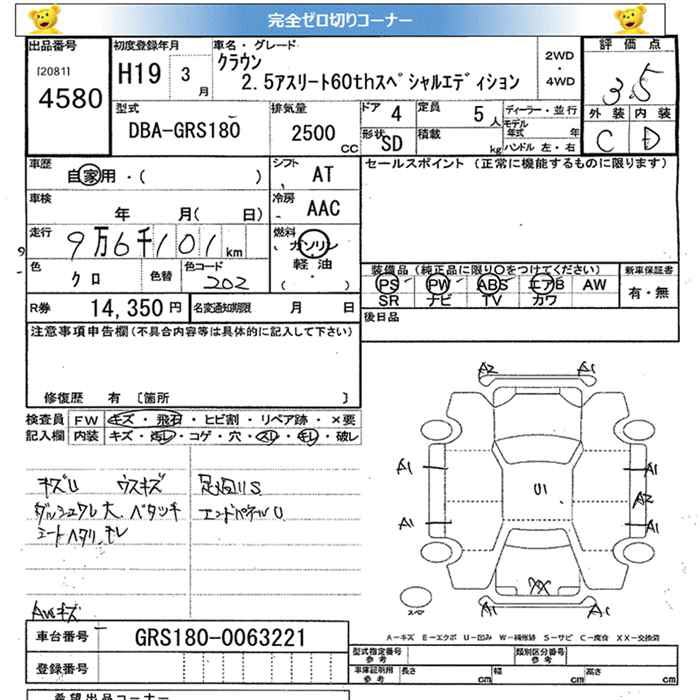 完全ゼロ切りコーナー
出品番号 初度登録年月 車名・グレード 評価点
[2081] H19 3月 クラウン 2WD・4WD 3.5
4580 2.5アスリート60thスペシャルエディション
外装 内装
型式 排気量 ドア 4 定員 5人 ディーラー・並行 C D
DBA-GRS180 2500CC 形状 SD 積載 kg モデル年式 年
ハンドル 左・右
車歴 自家用・( ) シフト AT セールスポイント (正常に機能するものに限ります)
車検 年 月( 日) 冷房 AAC
走行 9万6千101km 燃料 ガソリン・軽油 ( )
色 クロ 色替 色コード 202
装備品 (純正品に限り○をつけてください) 新車保証書
PS PW ABS エアB AW 有・無
SR ナビ TV カワ
R券 14,350円 名変通知期限 月 日
後日品
注意事項申告欄(不具合内容等は具体的に記入して下さい)
修復歴 有 [箇所 ]
検査員 FW キズ・飛石・ヒビ割・リペア跡・×要
記入欄 内装 キズ・汚レ・コゲ・穴・スレ・キレ・破レ
キズU ウスキズ 足廻リS
ダッシュワレ大、ベタツキ エンドパネルU
シートヘタリ、キレ
AWキズ
A2 A1
A1 A1
U1 A2
A1 A1
XX
スペア A1 A1
A−キズ E−エクボ U−凹み W−補修跡 S−サビ C−腐食 XX−交換済
車台番号 GRS180-0063221
型式指定番号 参考 類別区分番号 参考
登録番号 車庫証明用 参考 長さ cm 幅 cm 高さ cm
希望出品コーナー